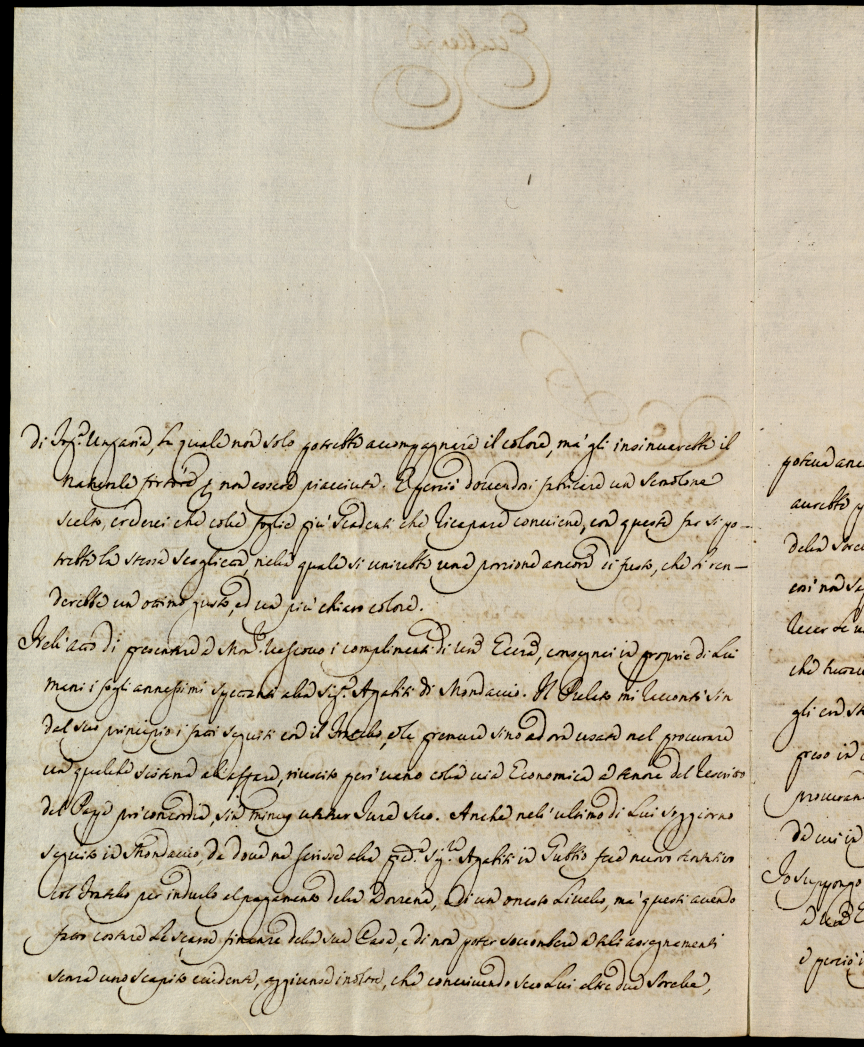 di Ing.ª Ungaria, la quale non solo potrebbe accompagnare il colore, ma' gli insinuarebbe il
naturale non essere piacciuto. E perciò dovendosi fabricare un Semolone
scelto, crederei che colle foglie più scadenti che ricapare conviene, con queste far si po-
trebbe la stessa Scoglietta, nella quale si unirebbe una porzione ancora di fusto, che ti ren-
derebbe un ottimo gusto, ed un più chiaro colore.
Nell'atto di presentare a Mon.r Vescovo i complimenti di Vra Eccza, consegnai in proprie di Lui
mani i fogli annessimi spettanti alla Sig.ª Agaliti di Mondavio. Il Prelato mi raccontò sin
dal suo principio i fatti seguiti con il Fratello, e le premure sino ad ora usate nel procurare
un qualche sistema all'affare, riuscito però vano colla via Economica a tenore del Rescritto
del Papa pro concordia, sin minus utatur Jure Suo. Anche nell'ultimo di Lui soggiorno
seguito in Mondavio, da dove ne scrisse alla pred.ª Sig.ª Agaliti in Gubbio fece nuovo tentativo
col Fratello per indurlo al pagamento della Dozzena, e di un onesto Livello, ma' questi avendo
fatto costare le scarse finanze della sua Casa, e di non poter soccombere a tali assegnamenti
senza uno scapito evidente, aggiunse inoltre, che convivendo seco Lui altre due Sorelle,
poteva anc
avrebbe p
della Sorel
così non se
che
gli
preso in
procuran
da cui in
Io suppongo
a Vra E
e perciò i